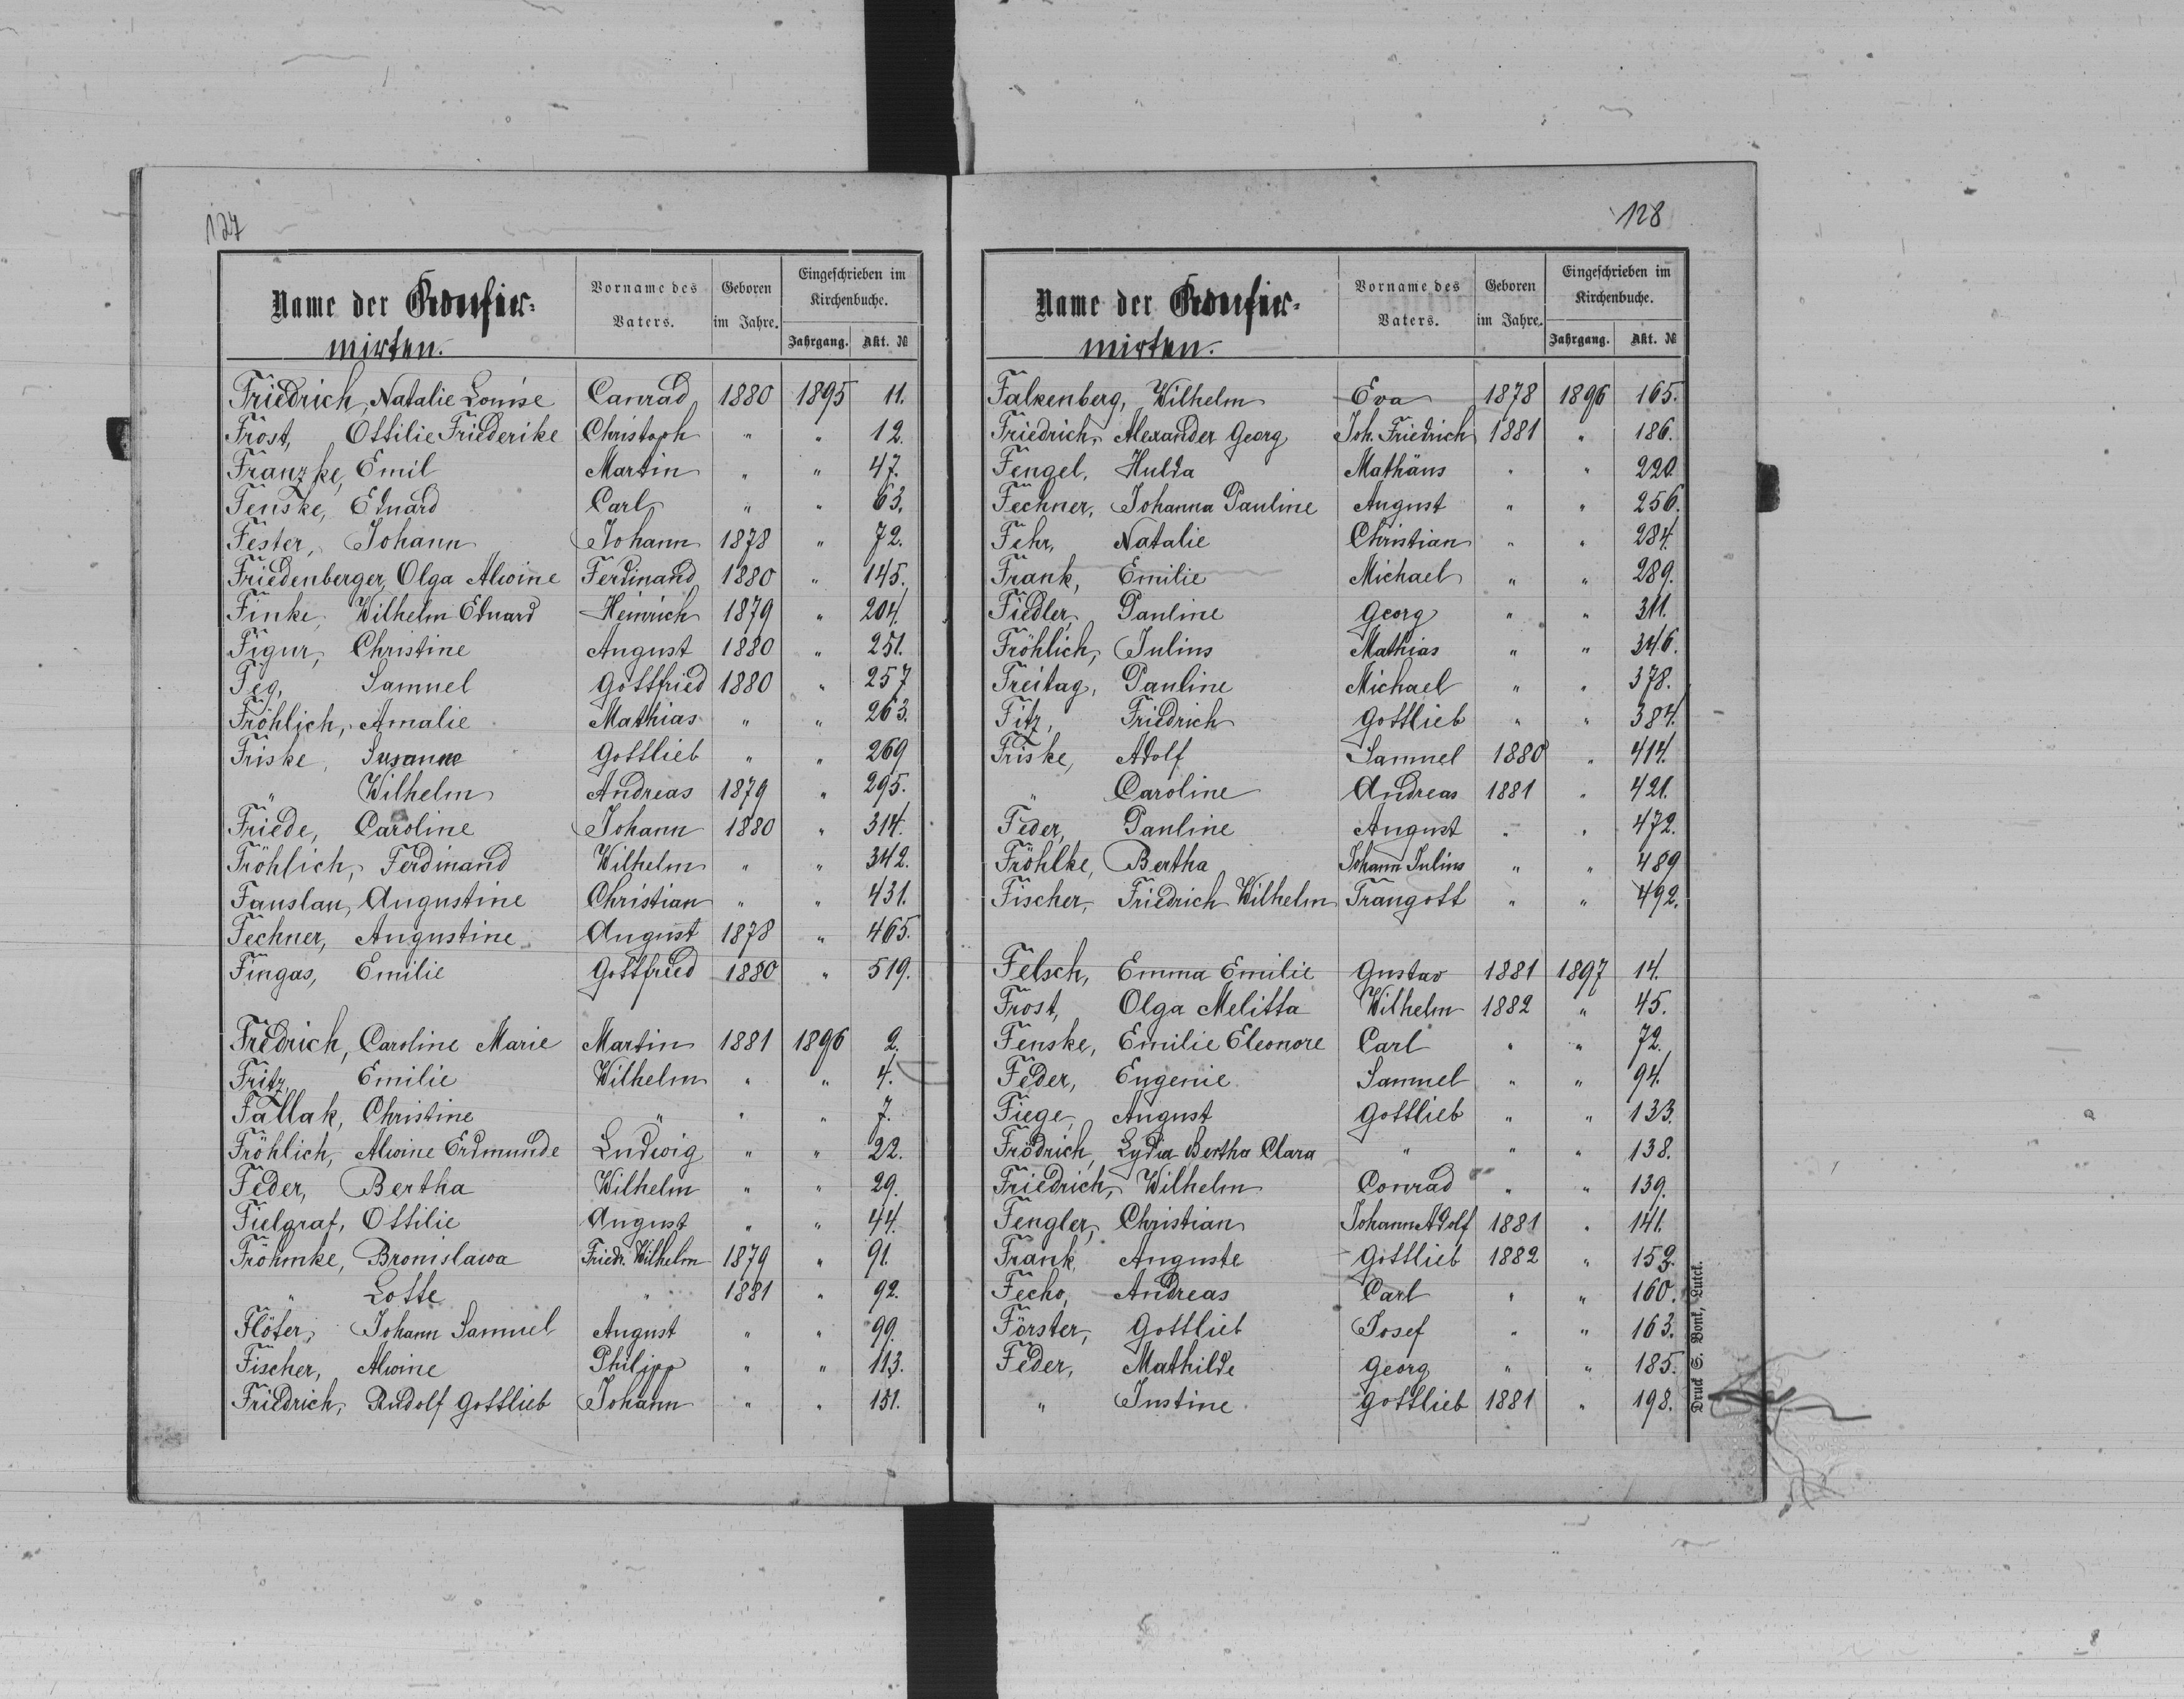 127
Name der Konfir-
mirten.
Vorname des Vaters.
Geboren im Jahre.
Eingeschrieben im Kirchenbuche.
Jahrgang. Akt. №
Friedrich, Natalie Louise Conrad 1880 1895 11.
Frost, Ottilie Friederike Christoph " " 12.
Franzke, Emil Martin " " 47.
Fenske, Eduard Carl " " 63.
Fester, Johann Johann 1878 " 72.
Friedenberger, Olga Alwine Ferdinand 1880 " 145.
Finke, Wilhelm Eduard Heinrich 1879 " 204.
Figur, Christine August 1880 " 251.
Feg, Samuel Gottfried 1880 " 257
Fröhlich, Amalie Mathias " " 263.
Friske, Susanne Gottlieb " " 269
" Wilhelm Andreas 1879 " 295.
Friede, Caroline Johann 1880 " 314.
Fröhlich, Ferdinand Wilhelm " " 342.
Fauslau, Augustine Christian " " 431.
Fechner, Augustine August 1878 " 465.
Fingas, Emilie Gottfried 1880 " 519.
Fredrich, Caroline Marie Martin 1881 1896 2.
Fritz, Emilie Wilhelm " " 4.
Fallak, Christine " " " 7.
Fröhlich, Alwine Erdmunde Ludwig " " 22.
Feder, Bertha Wilhelm " " 29.
Fielgraf, Ottilie August " " 44.
Fröhmke, Bronislawa Friedr. Wilhelm 1879 " 91.
" Lotte " 1881 " 92.
Flöter, Johann Samuel August " " 99.
Fischer, Alwine Philipp " " 113.
Friedrich, Rudolf Gottlieb Johann " " 151.
128
Name der Konfir-
mirten.
Vorname des Vaters.
Geboren im Jahre.
Eingeschrieben im Kirchenbuche.
Jahrgang. Akt. №
Falkenberg, Wilhelm Eva 1878 1896 165.
Friedrich, Alexander Georg Joh. Friedrich 1881 " 186.
Fengel, Hulda Mathäus " " 220
Fechner, Johanna Pauline August " " 256.
Fehr, Natalie Christian " " 284.
Frank, Emilie Michael " " 289.
Fiedler, Pauline Georg " " 311.
Fröhlich, Julius Mathias " " 346.
Freitag, Pauline Michael " " 378.
Fitz, Friedrich Gottlieb " " 384.
Friske, Adolf Samuel 1880 " 414.
" Caroline Andreas 1881 " 421.
Feder, Pauline August " " 472.
Fröhlke, Bertha Johann Julius " " 489
Fischer, Friedrich Wilhelm Traugott " " 492.
Felsch, Emma Emilie Gustav 1881 1897 14.
Frost, Olga Melitta Wilhelm 1882 " 45.
Fenske, Emilie Eleonore Carl " " 72.
Feder, Eugenie Samuel " " 94.
Fiege, August Gottlieb " " 133.
Frödrich, Lydia Bertha Clara " " " 138.
Friedrich, Wilhelm Conrad " " 139.
Fengler, Christian Johann Adolf 1881 " 141.
Frank, Auguste Gottlieb 1882 " 152.
Fecho, Andreas Carl " " 160.
Förster, Gottlieb Josef " " 163.
Feder, Mathilde Georg " " 185.
" Justine Gottlieb 1881 " 198.
Druck S. Bonk, Lutck.